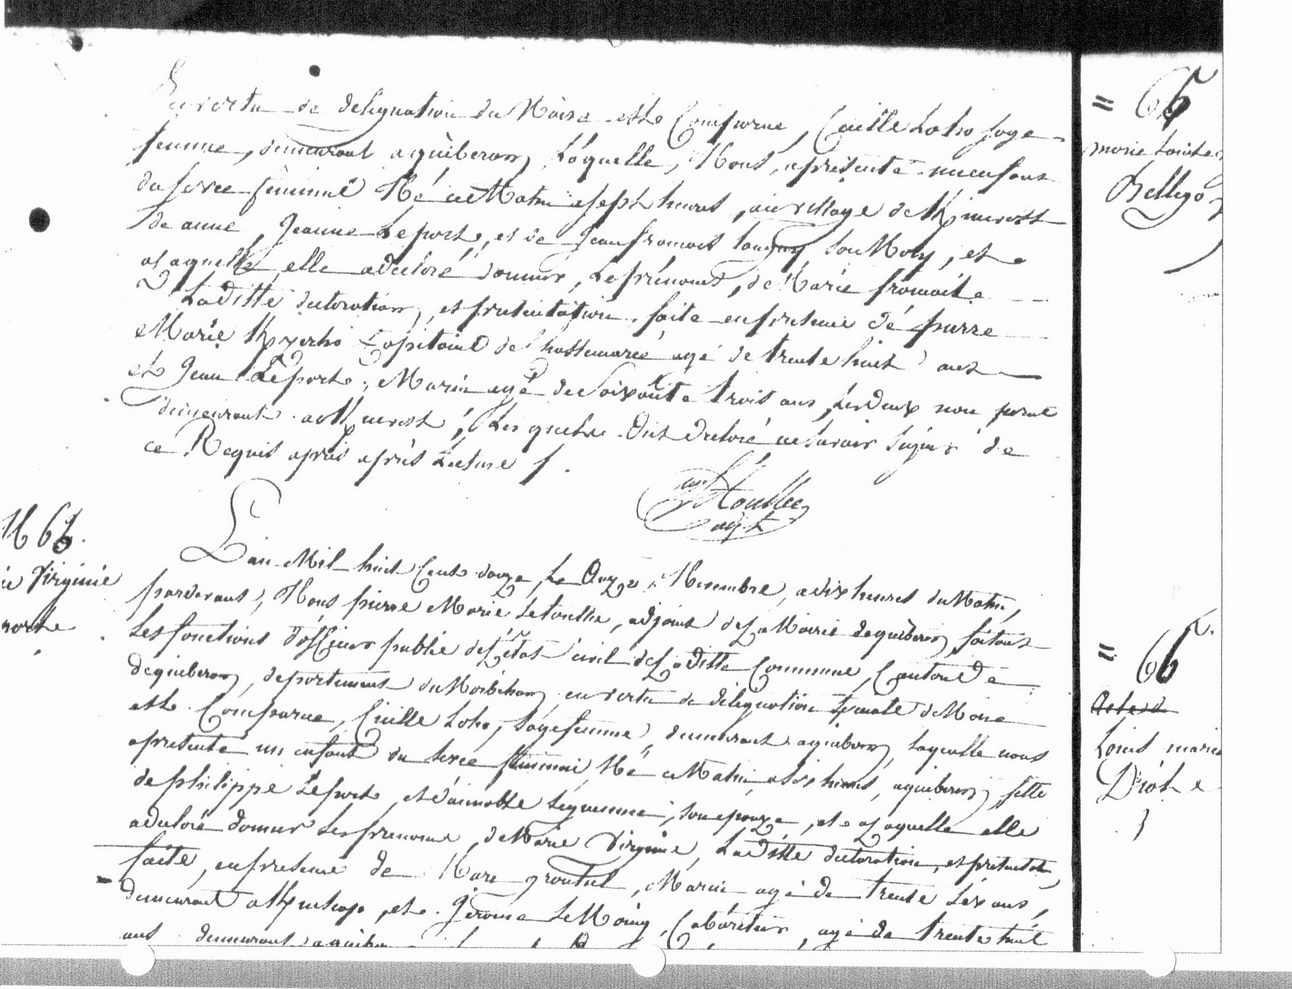 En vertu de délégation du Maire est Comparue, Cécille Loho Sage
femme, demeurant a quiberon, Laquelle, Nous, apresenté un enfant
du sexe feminin Né ce Matin a sept heures, au village de Kniscost
de anne, Jeanne Leport, et de Jean françois tanguy, Son Mary, et
a Laquelle elle a declaré donner, Les prénoms, de Marie françoise
Laditte declaration, et presentation, faite en presence de pierre
Marie Capitaine de Chassemarée agé de trente huit ans
et Jean Leport, Marin agé de Soixante trois ans, Les deux non parent
demeurant a Les quels Ont declaré ne Savoir Signer de
ce Requis après après Lecture /.
Toullec
adjt
N 66.
ie Virginie
L'an Mil huit Cent douze, Le Onze Novembre, a dix heures du Matin,
pardevant, Nous pierre Marie Letoullec, adjoint de La Mairie de quiberon, faitant
Les fonctions d'officier public de L'état civil de Laditte Commune, Canton de
de quiberon, departement du Morbihan, en vertu de délégation du Maire
est Comparue, Cécille Loho, Sage femme, demeurant a quiberon, Laquelle nous
apresenté un enfant du sexe feminin Né ce Matin, a Six heures, a quiberon, fille
de philippe Leport, et d'aimable Son epouze, et a Laquelle elle
a declaré donner Les prenoms, de Marie Virginie, Laditte declaration, et presentation,
faite, en presence de Marc groutel, Marin agé de trente Six ans,
demeurant a et Gérome Le Moing, Cabaretier, agé de trente huit
ans demeurant a quiberon
= 65
marie Louise
Bellego
= 66
Louis marie